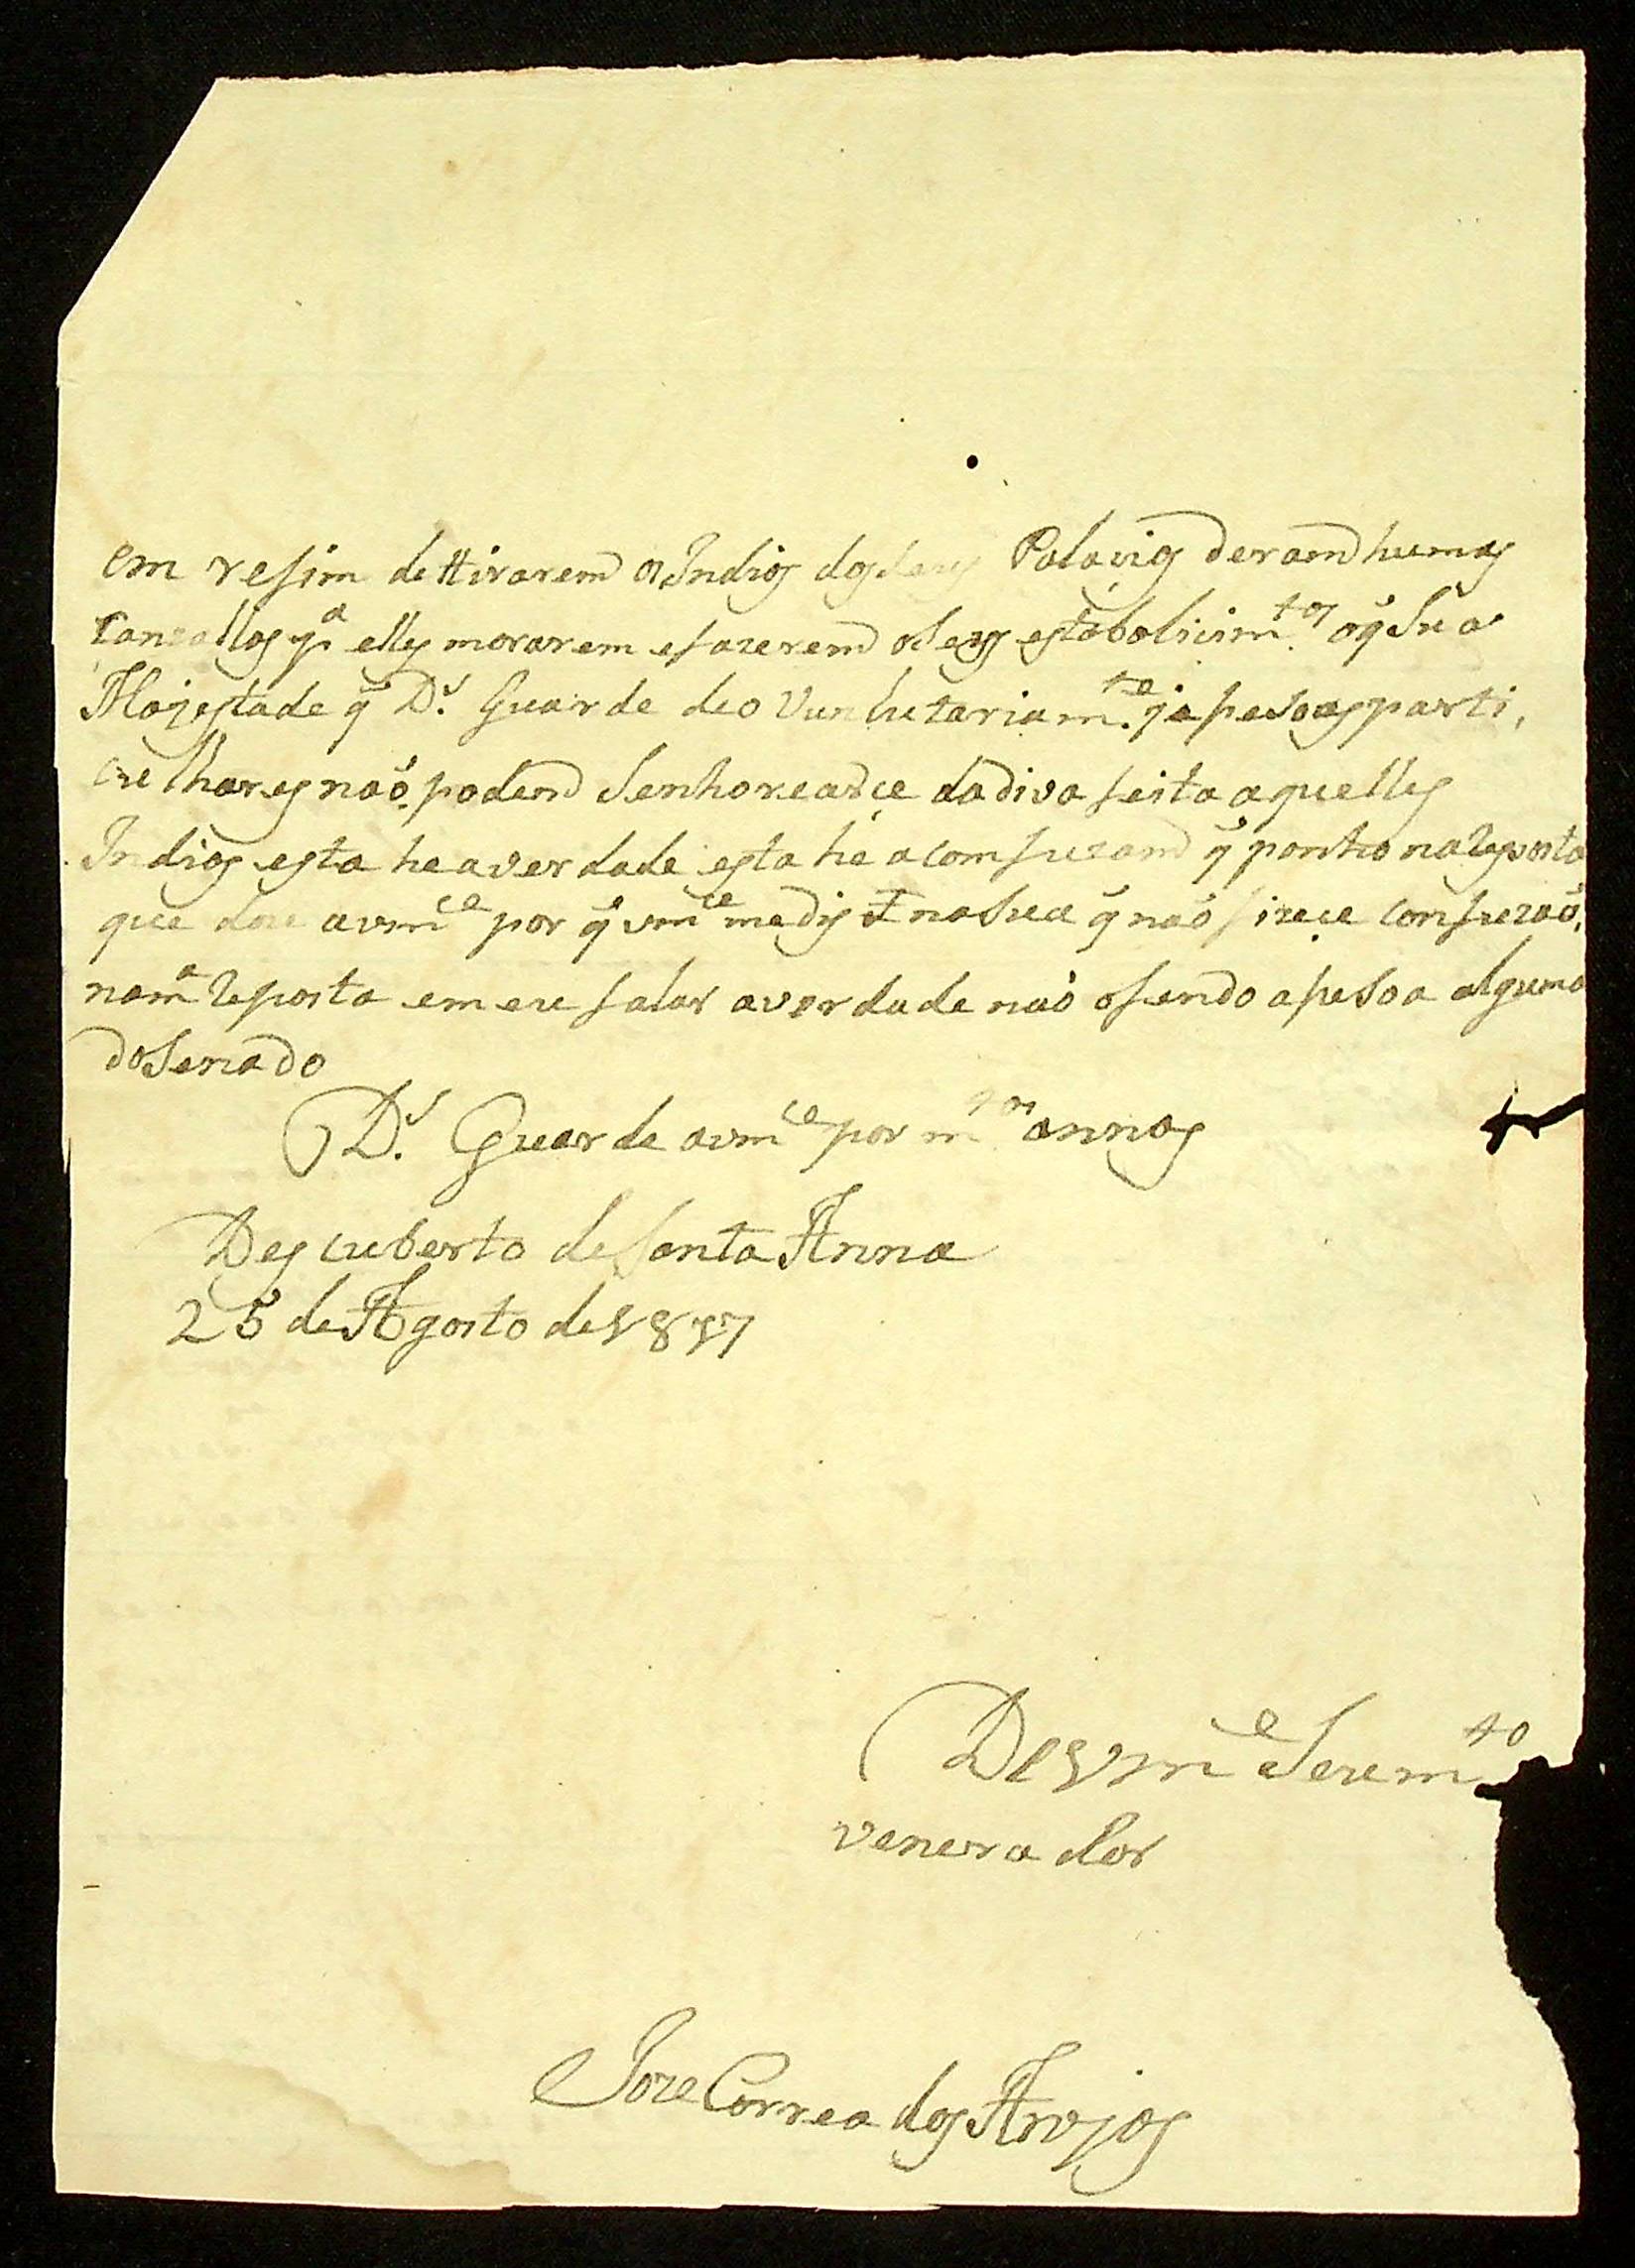 em resim dettirarem os Indios dos seus Palacios deram humas
Canzallas pª elles morarem e fazerem os seus establicimtos o q̃ Sua
Majestade q̃ Ds. Guarde deo Vunlutariamte ja pesoas parti,
culhares naõ podem Senhorearce dadiva feita aquelles
Indios esta he a verdade esta he a comfuzam q̃ ponho na Reposta
que dou a vmce por q̃ vmce me diz na sua q̃ naõ fizece comfuzaõ,
na mª Reposta em eu falar a verdade naõ ofendo a pesoa alguma
do Senado
Ds. Guarde a vmce por mtos annos
Descuberto de Santa Anna
25 de Agosto de 1817
De Vmce Seu mto
venerador
Joze Correa dos Anjos